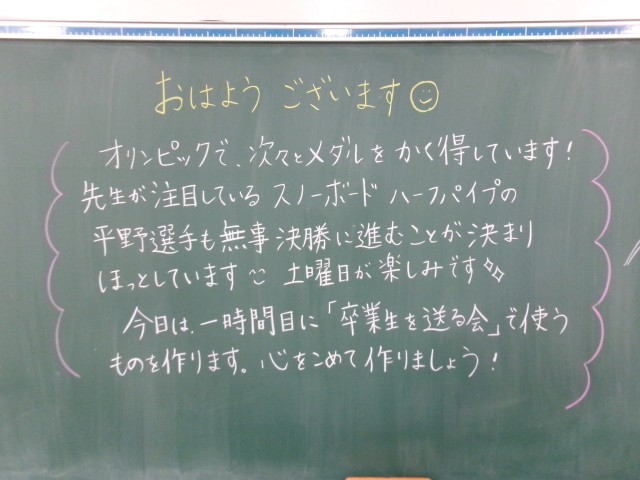 おはよう ございます
オリンピックで、次々とメダルを かく得しています！
先生が注目している スノーボード ハーフパイプの
平野選手も無事決勝に進むことが決まり
ほっとしています 土曜日が楽しみです
今日は、一時間目に「卒業生を送る会」で使う
ものを作ります。心をこめて作りましょう！